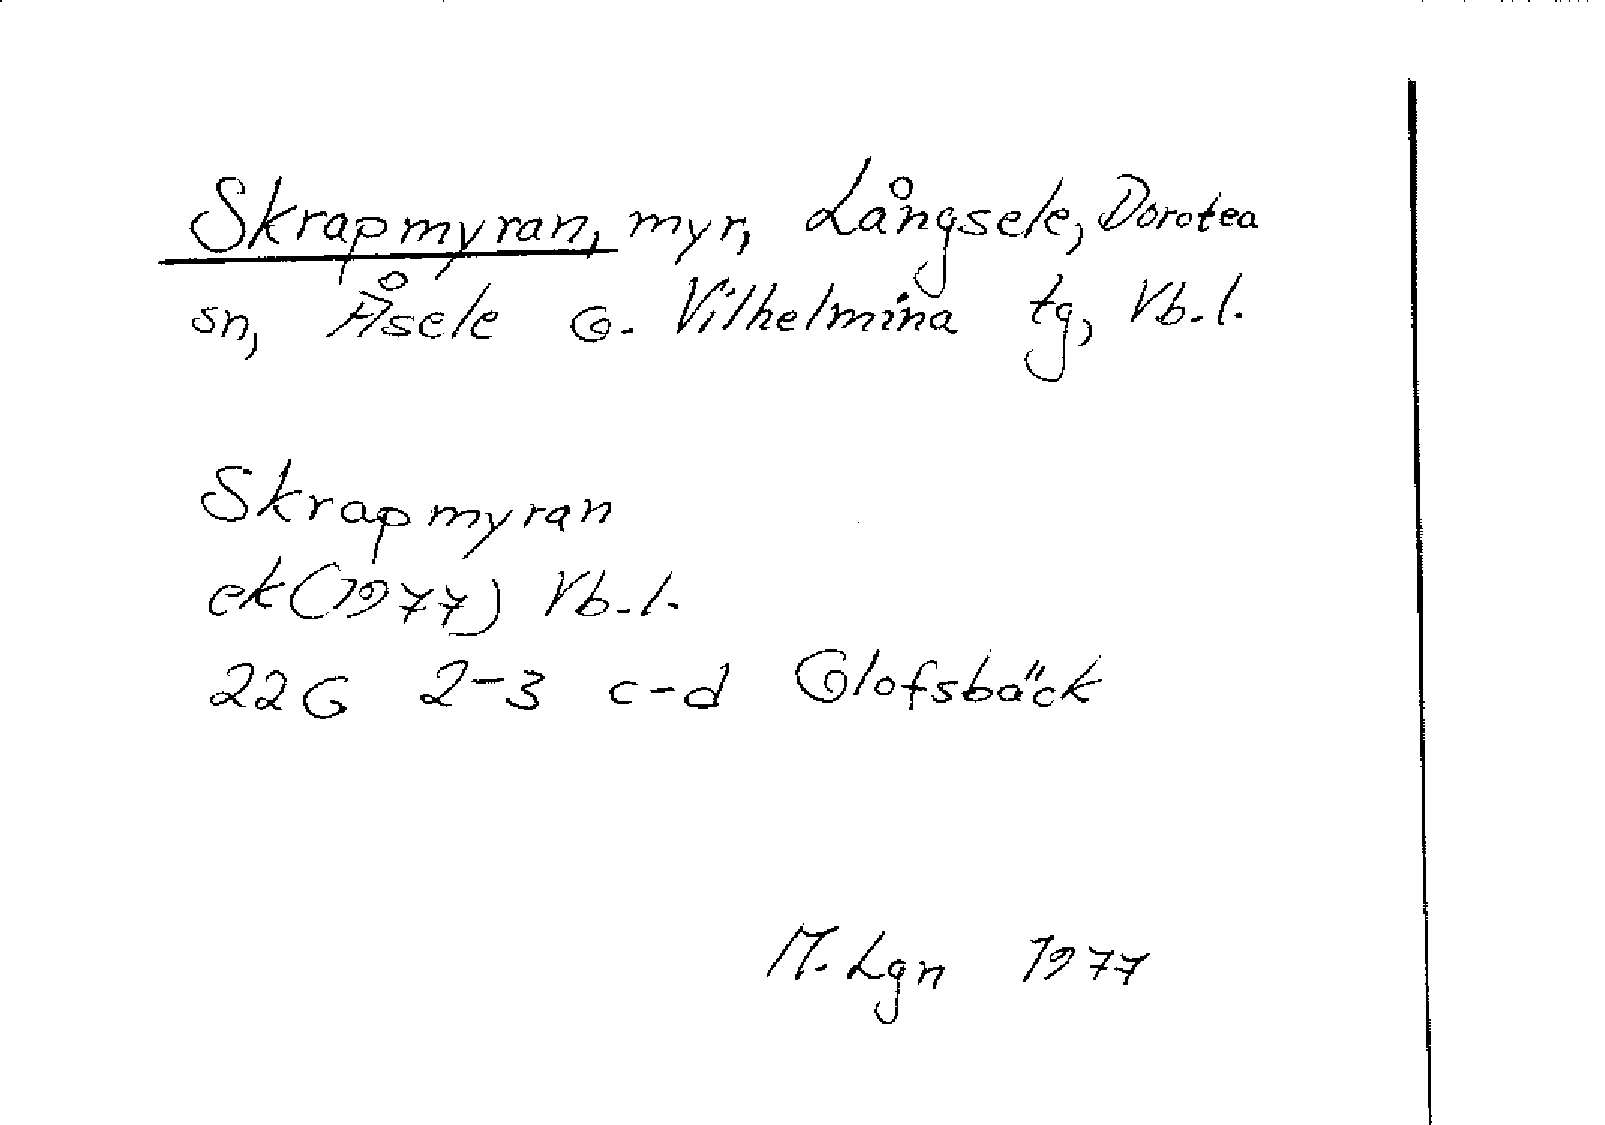 Skrapmyran, myr, Långsele, Dorotea
sn, Åsele o. Vilhelmina tg, Vb. l.
Skrapmyran
ek (1977) Vb. l.
22G 2-3 c-d Olofsbäck
M. Lgn 1977